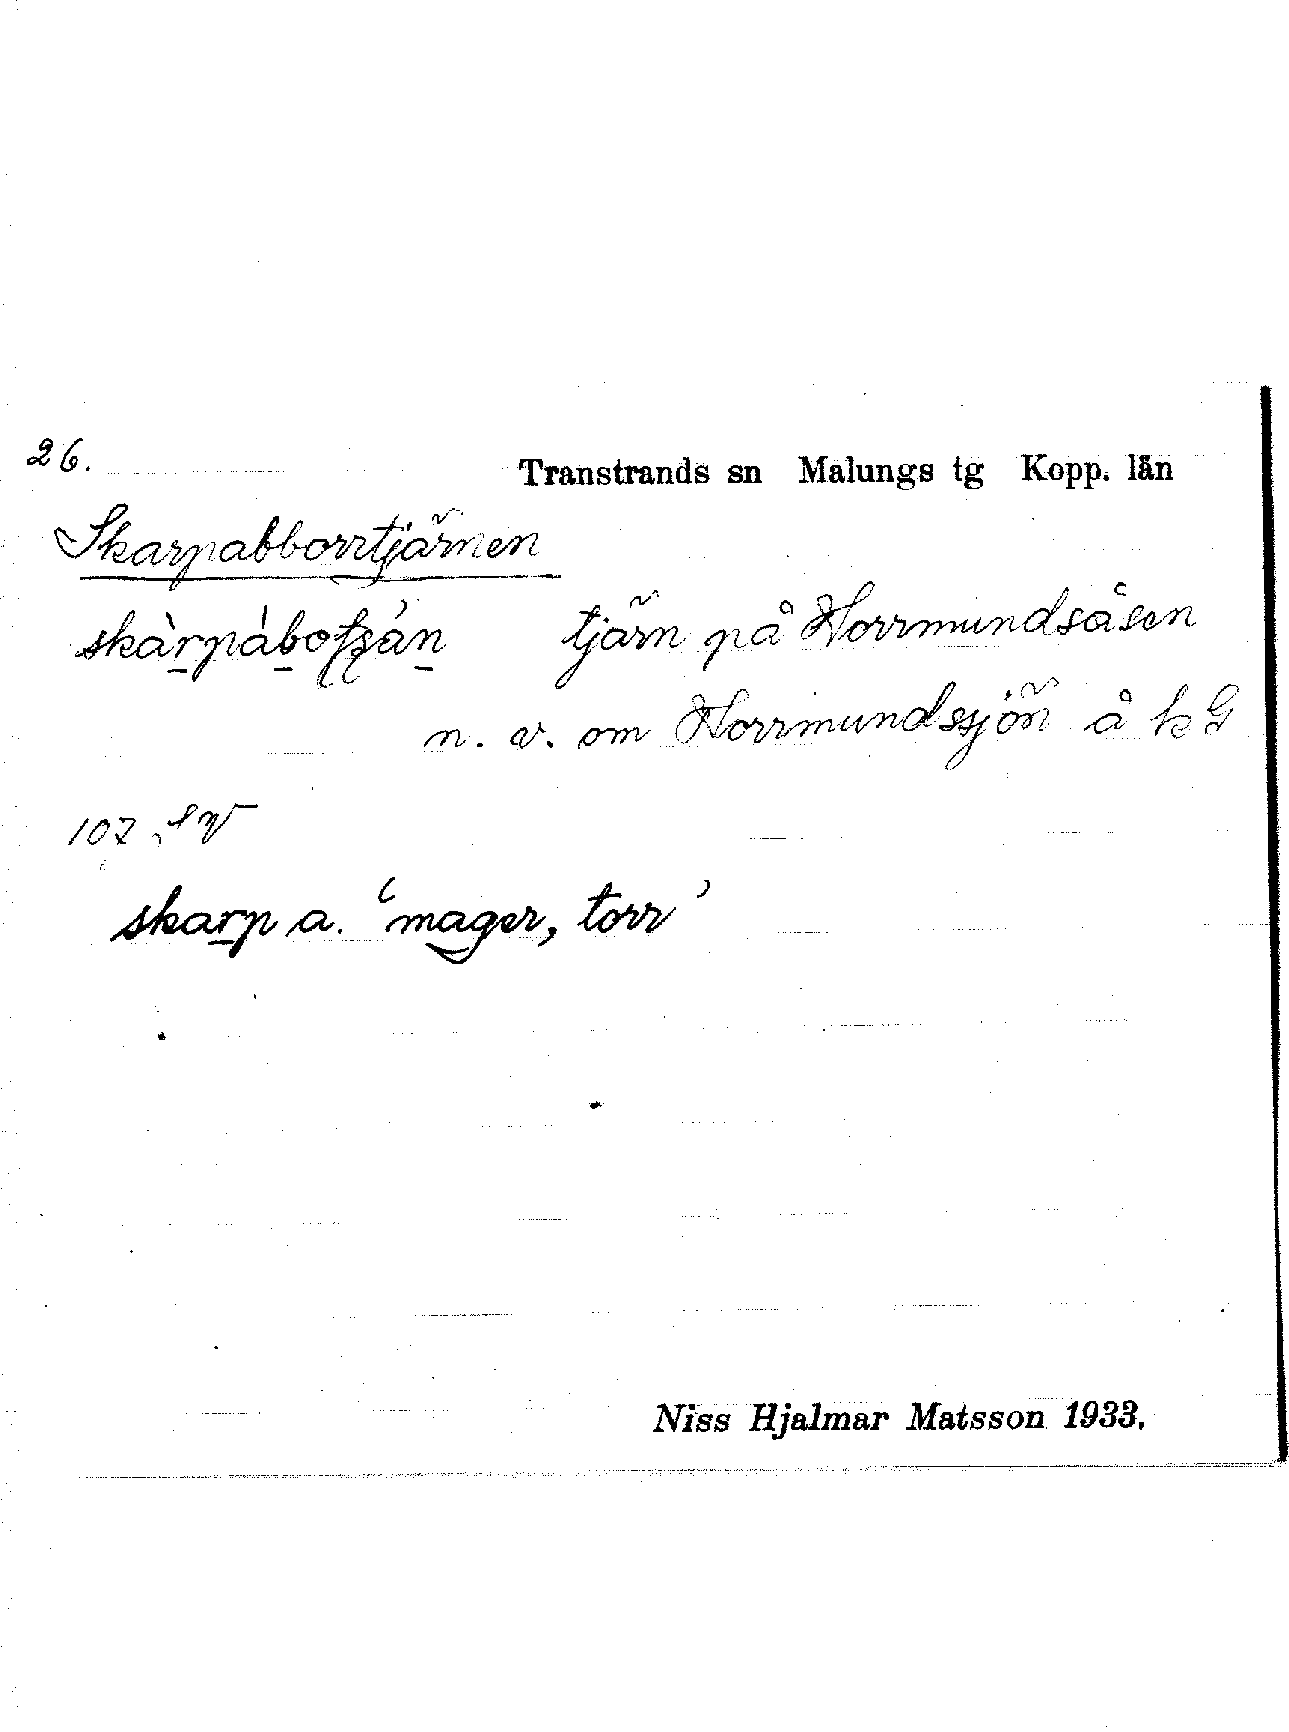 26.
Transtrands sn Malungs tg Kopp. län
Skarpabborrtjärnen
tjärn på Horrmundsåsen
n. v. om Horrmundsjön å k G
107 SV
skarp a. ‘mager, torr’
Niss Hjalmar Matsson 1933.